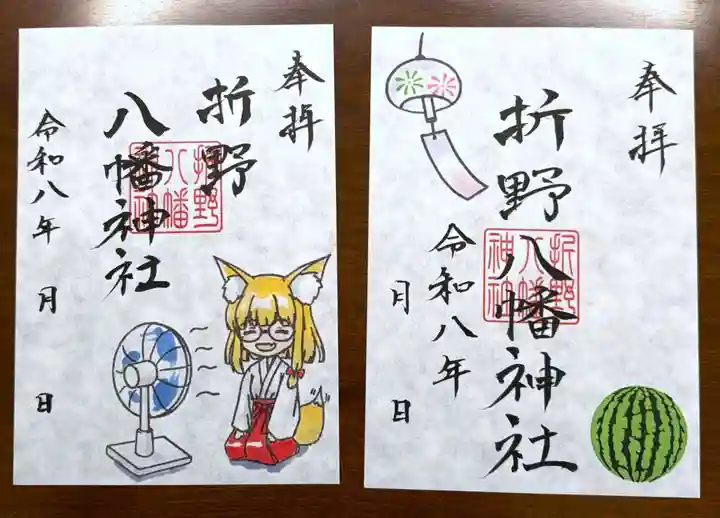 奉拝
折野
八幡神社
令和八年 月 日
折野
八幡
神社
奉拝
折野八幡神社
令和八年 月 日
折野
八幡
神社